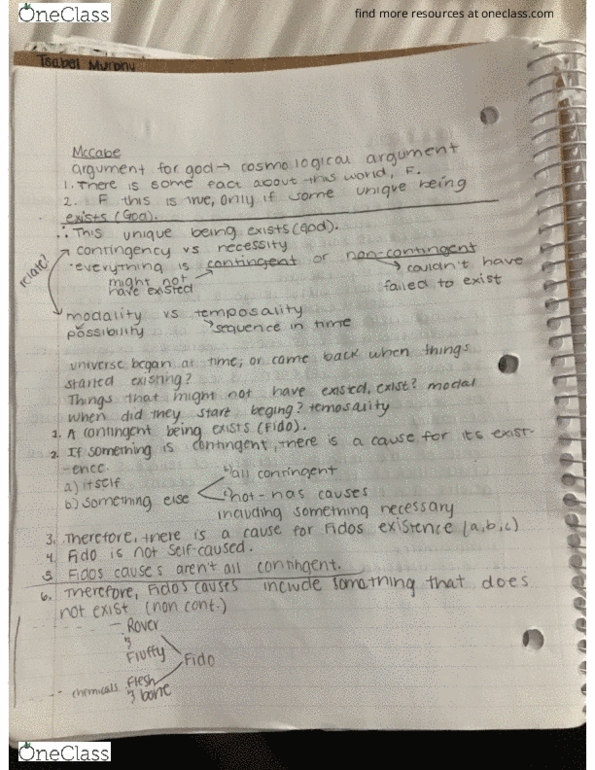 OneClass
find more resources at oneclass.com
Isabel Murphy
McCabe
argument for god → cosmological argument
1. There is some fact about this world, F.
2. F this is true, only if some unique being
exists (God).
∴ This unique being exists (God).
relate?
contingency vs necessity
• everything is contingent or non-contingent
might not have existed
couldn't have failed to exist
modality vs temposality
possibility
sequence in time
universe began at time; or came back when things
started existing?
Things that might not have existed, exist? modal
when did they start beging? temosarity
1. A contingent being exists (Fido).
2. If something is contingent, there is a cause for its exist-
-ence.
a) itself
b) something else
all contingent
not - has causes
including something necessary
3. Therefore, there is a cause for Fidos existence (a, b, c)
4. Fido is not self-caused.
5. Fidos causes aren't all contingent.
6. Therefore, Fidos causes include something that does
not exist (non cont.)
Rover
Fluffy
Fido
chemicals
Flesh
bone
OneClass